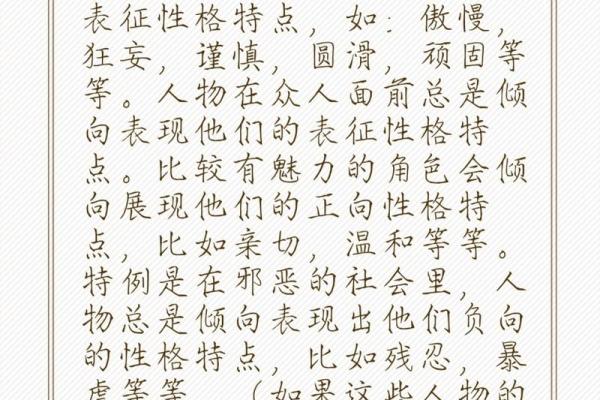 表征性格特点，如：傲慢，
狂妄，谨慎，圆滑，顽固等
等。人物在众人面前总是倾
向表现他们的表征性格特
点。比较有魅力的角色会倾
向展现他们的正向性格特
点，比如亲切，温和等等。
特例是在邪恶的社会里，人
物总是倾向表现出他们负向
的性格特点，比如残忍，暴
虐等等。（如果这些人物的